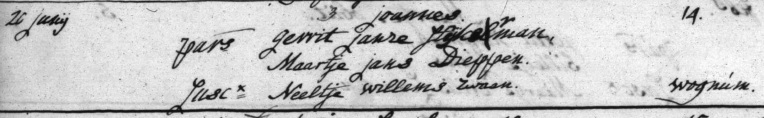 26 junij 3 joannes 14.
pars gerrit janze man,
Maartje jans Diepppen.
Susc x Neeltje willems. zwaen. wognúm.